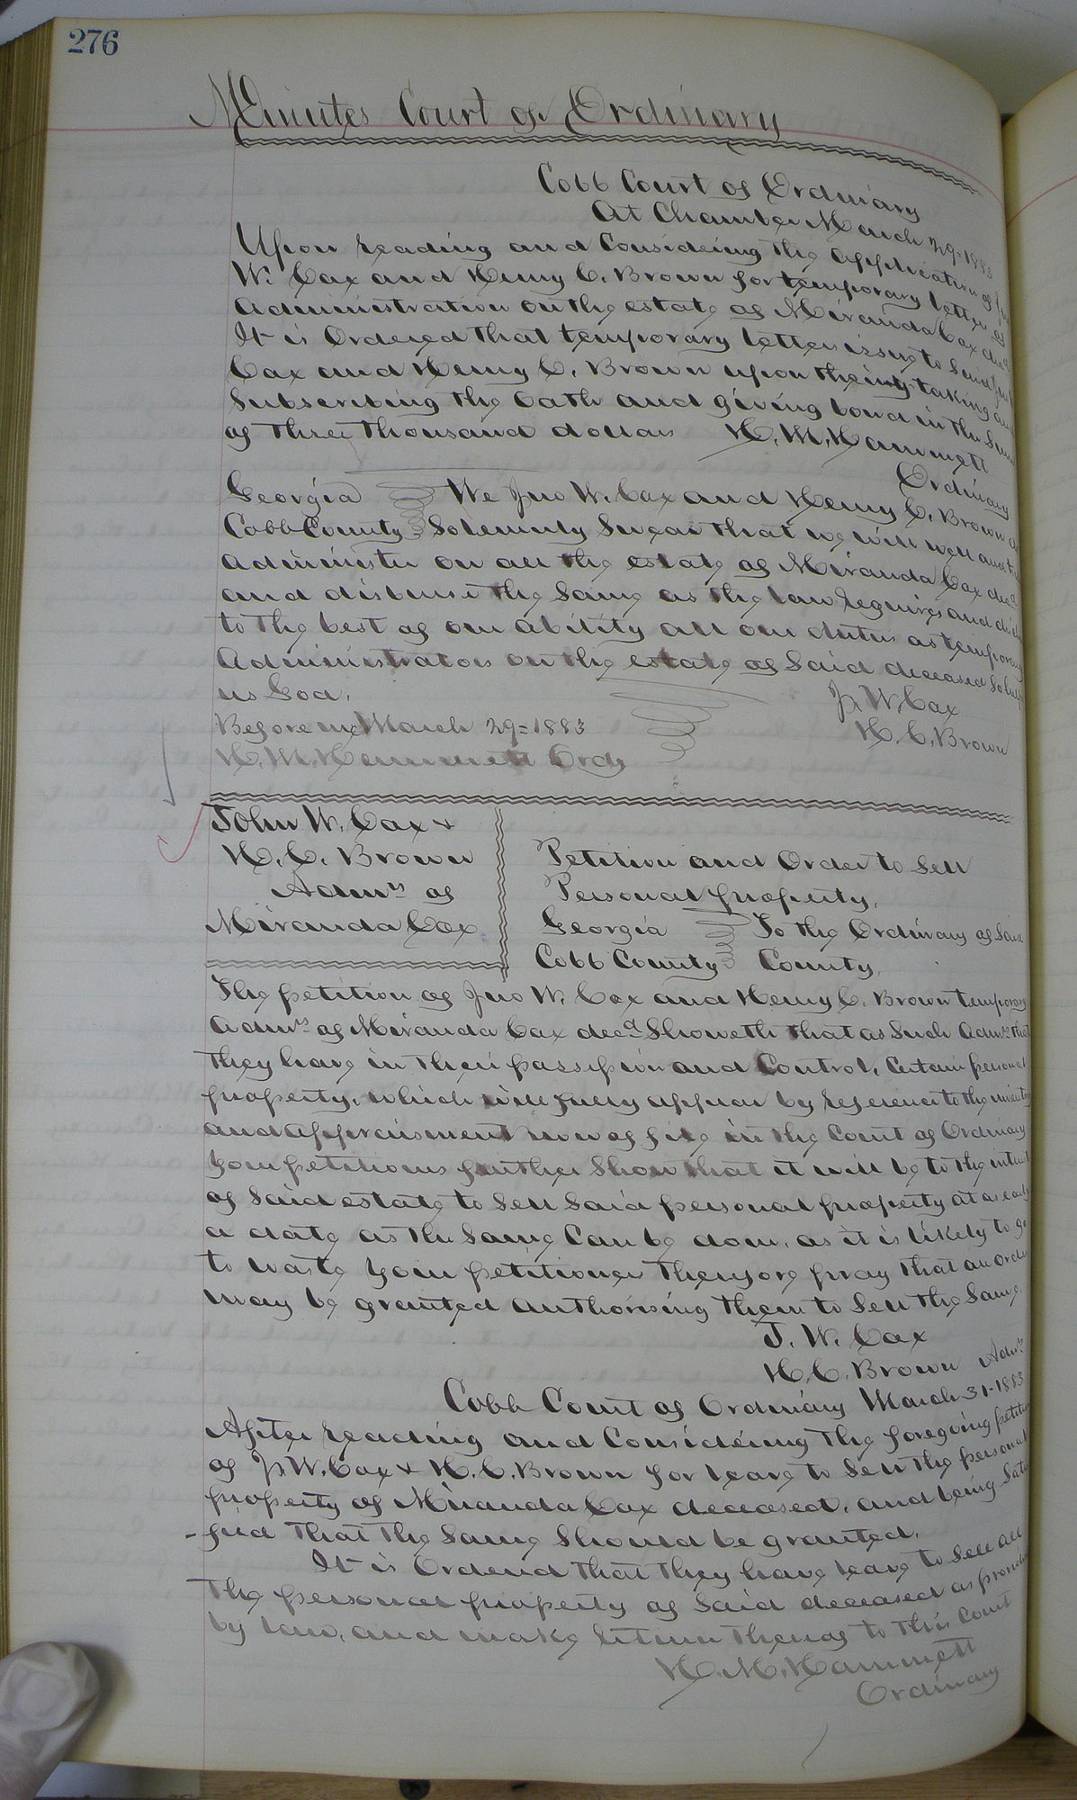 276
Minutes Court of Ordinary
Cobb Court of Ordinary
At Chamber March 29-1883
Upon reading and Considering the application of Jno
W. Cox and Henry C. Brown for temporary letters of
Administration on the estate of Miranda Cox decd
It is Ordered that temporary letters issue to Said Jno W
Cox and Henry C. Brown upon their taking and
Subscribing the Oath and giving bond in the Sum
of three thousand dollars H. M. Hammett
Ordinary
Georgia We Jno W. Cox and Henry C. Brown do
Cobb County Solemnly Swear that we will well and
Administer on all the estate of Miranda Cox decd
and disburse the Same as the law requires and
to the best of our ability all our duties as temporary
Administrators on the estate of Said deceased So help
us God.
J. W. Cox
Before me March 29-1883
H. C. Brown
H. M. Hammett Ordy
John W. Cox &
H. C. Brown
Admrs of
Miranda Cox
Petition and Order to Sell
Personal property.
Georgia To the Ordinary of Said
Cobb County County.
The petition of Jno W. Cox and Henry C. Brown temporary
Admrs of Miranda Cox decd Showeth that as Such Admrs that
they have in their possession and Control, Certain personal
property, which will fully appear by reference to the
and appraisment now of file in the Court of Ordinary
Your petitioners further Show that it will be to the interest
of Said estate to Sell Said personal property at as early
a date as the Same Can be done, as it is likely to go
to waste Your petitioner Therefore pray that an Order
may be granted authorising them to Sell the Same.
J. W. Cox
H. C. Brown Admrs
Cobb Court of Ordinary March 31-1883
After reading and Considering the foregoing petition
of J. W. Cox & H. C. Brown for leave to Sell the personal
property of Miranda Cox deceased, and being Satis
-fied that the Same Should be granted.
It is Ordered that they have leave to Sell all
the personal property of Said deceased as provided
by law, and make return thereof to this Court
H. M. Hammett
Ordinary